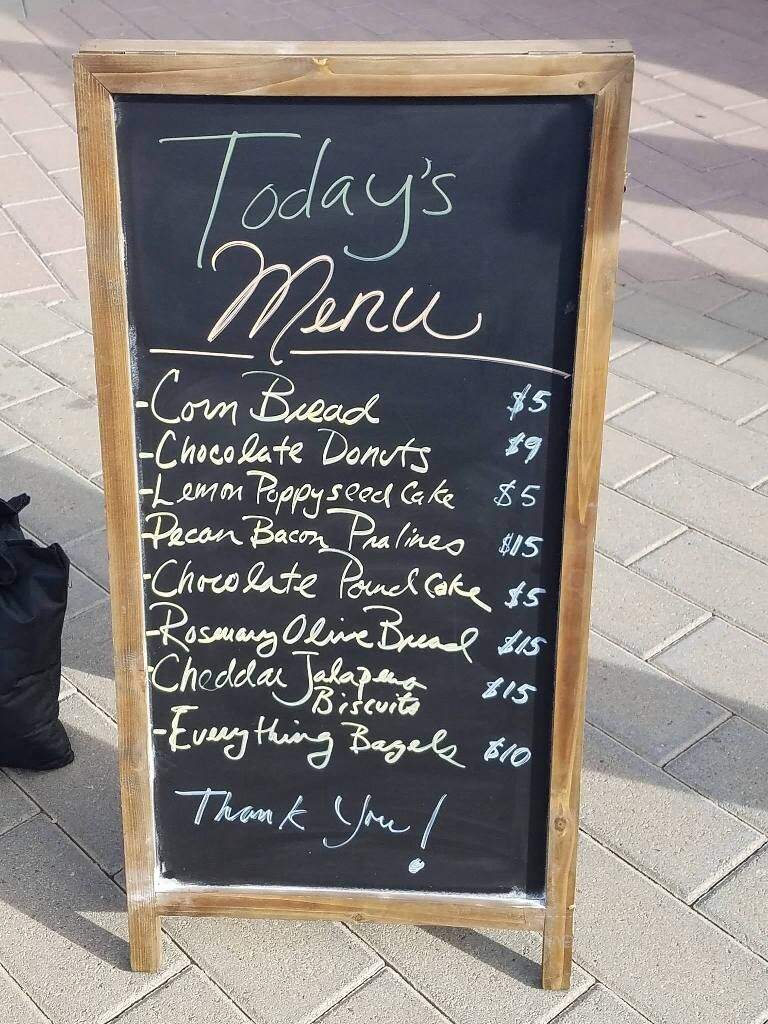 Today's
Menu
-Corn Bread $5
-Chocolate Donuts $9
-Lemon Poppyseed Cake $5
-Pecan Bacon Pralines $15
-Chocolate Pound Cake $5
-Rosemary Olive Bread $15
-Cheddar Jalapeno $15
Biscuits
-Everything Bagels $10
Thank You!